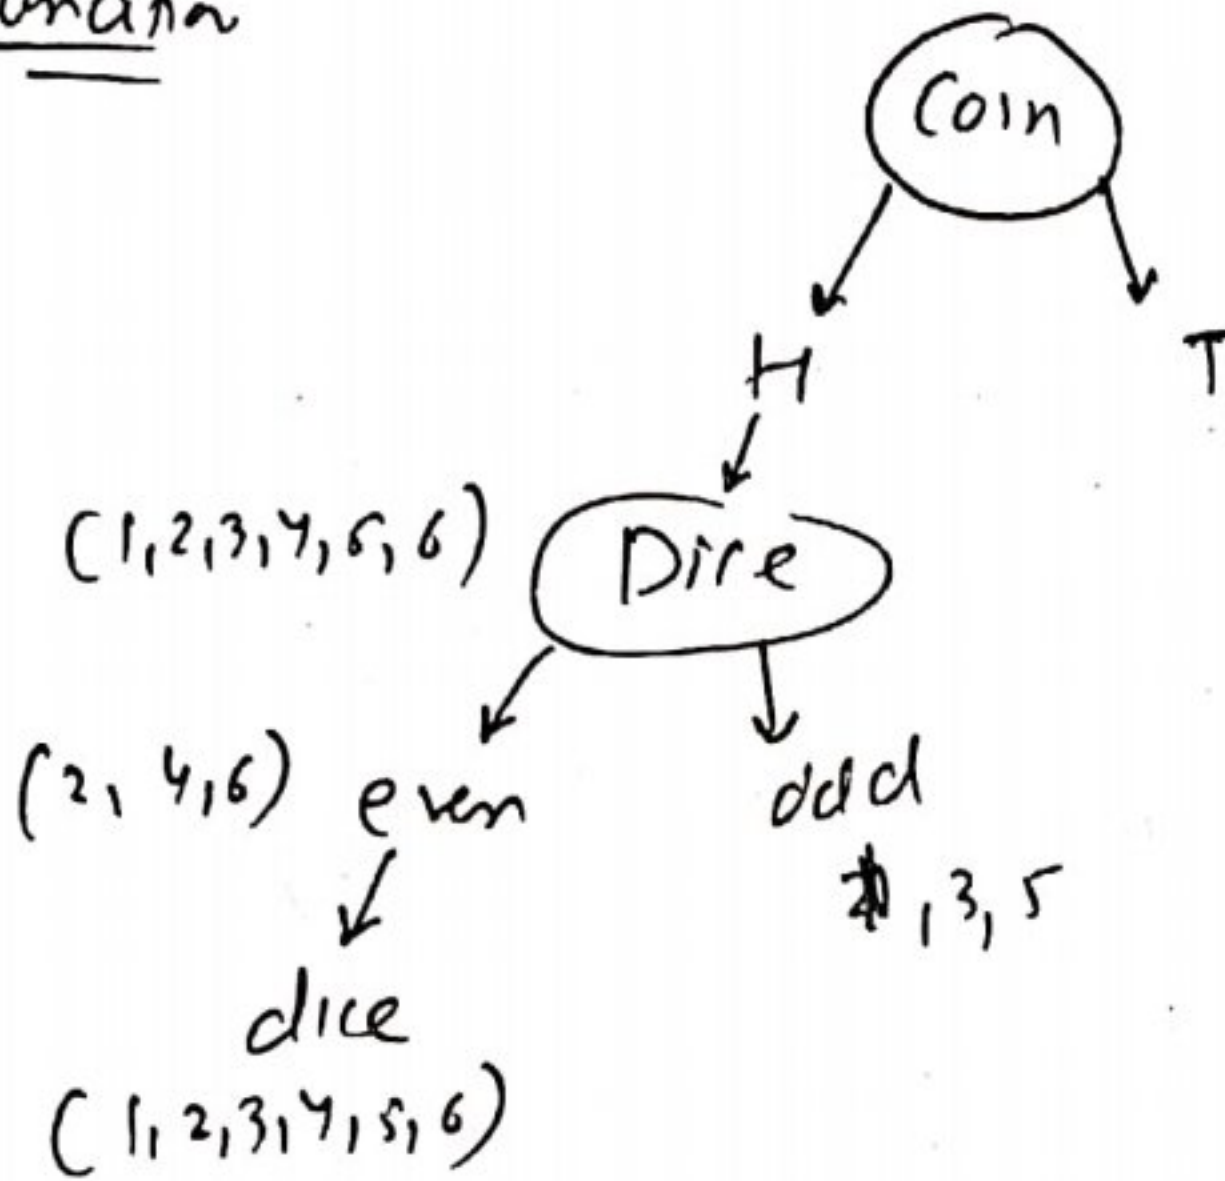 Coin
H T
(1,2,3,4,5,6) Dice
(2, 4,6) even odd
, 3, 5
dice
(1,2,3,4,5,6)